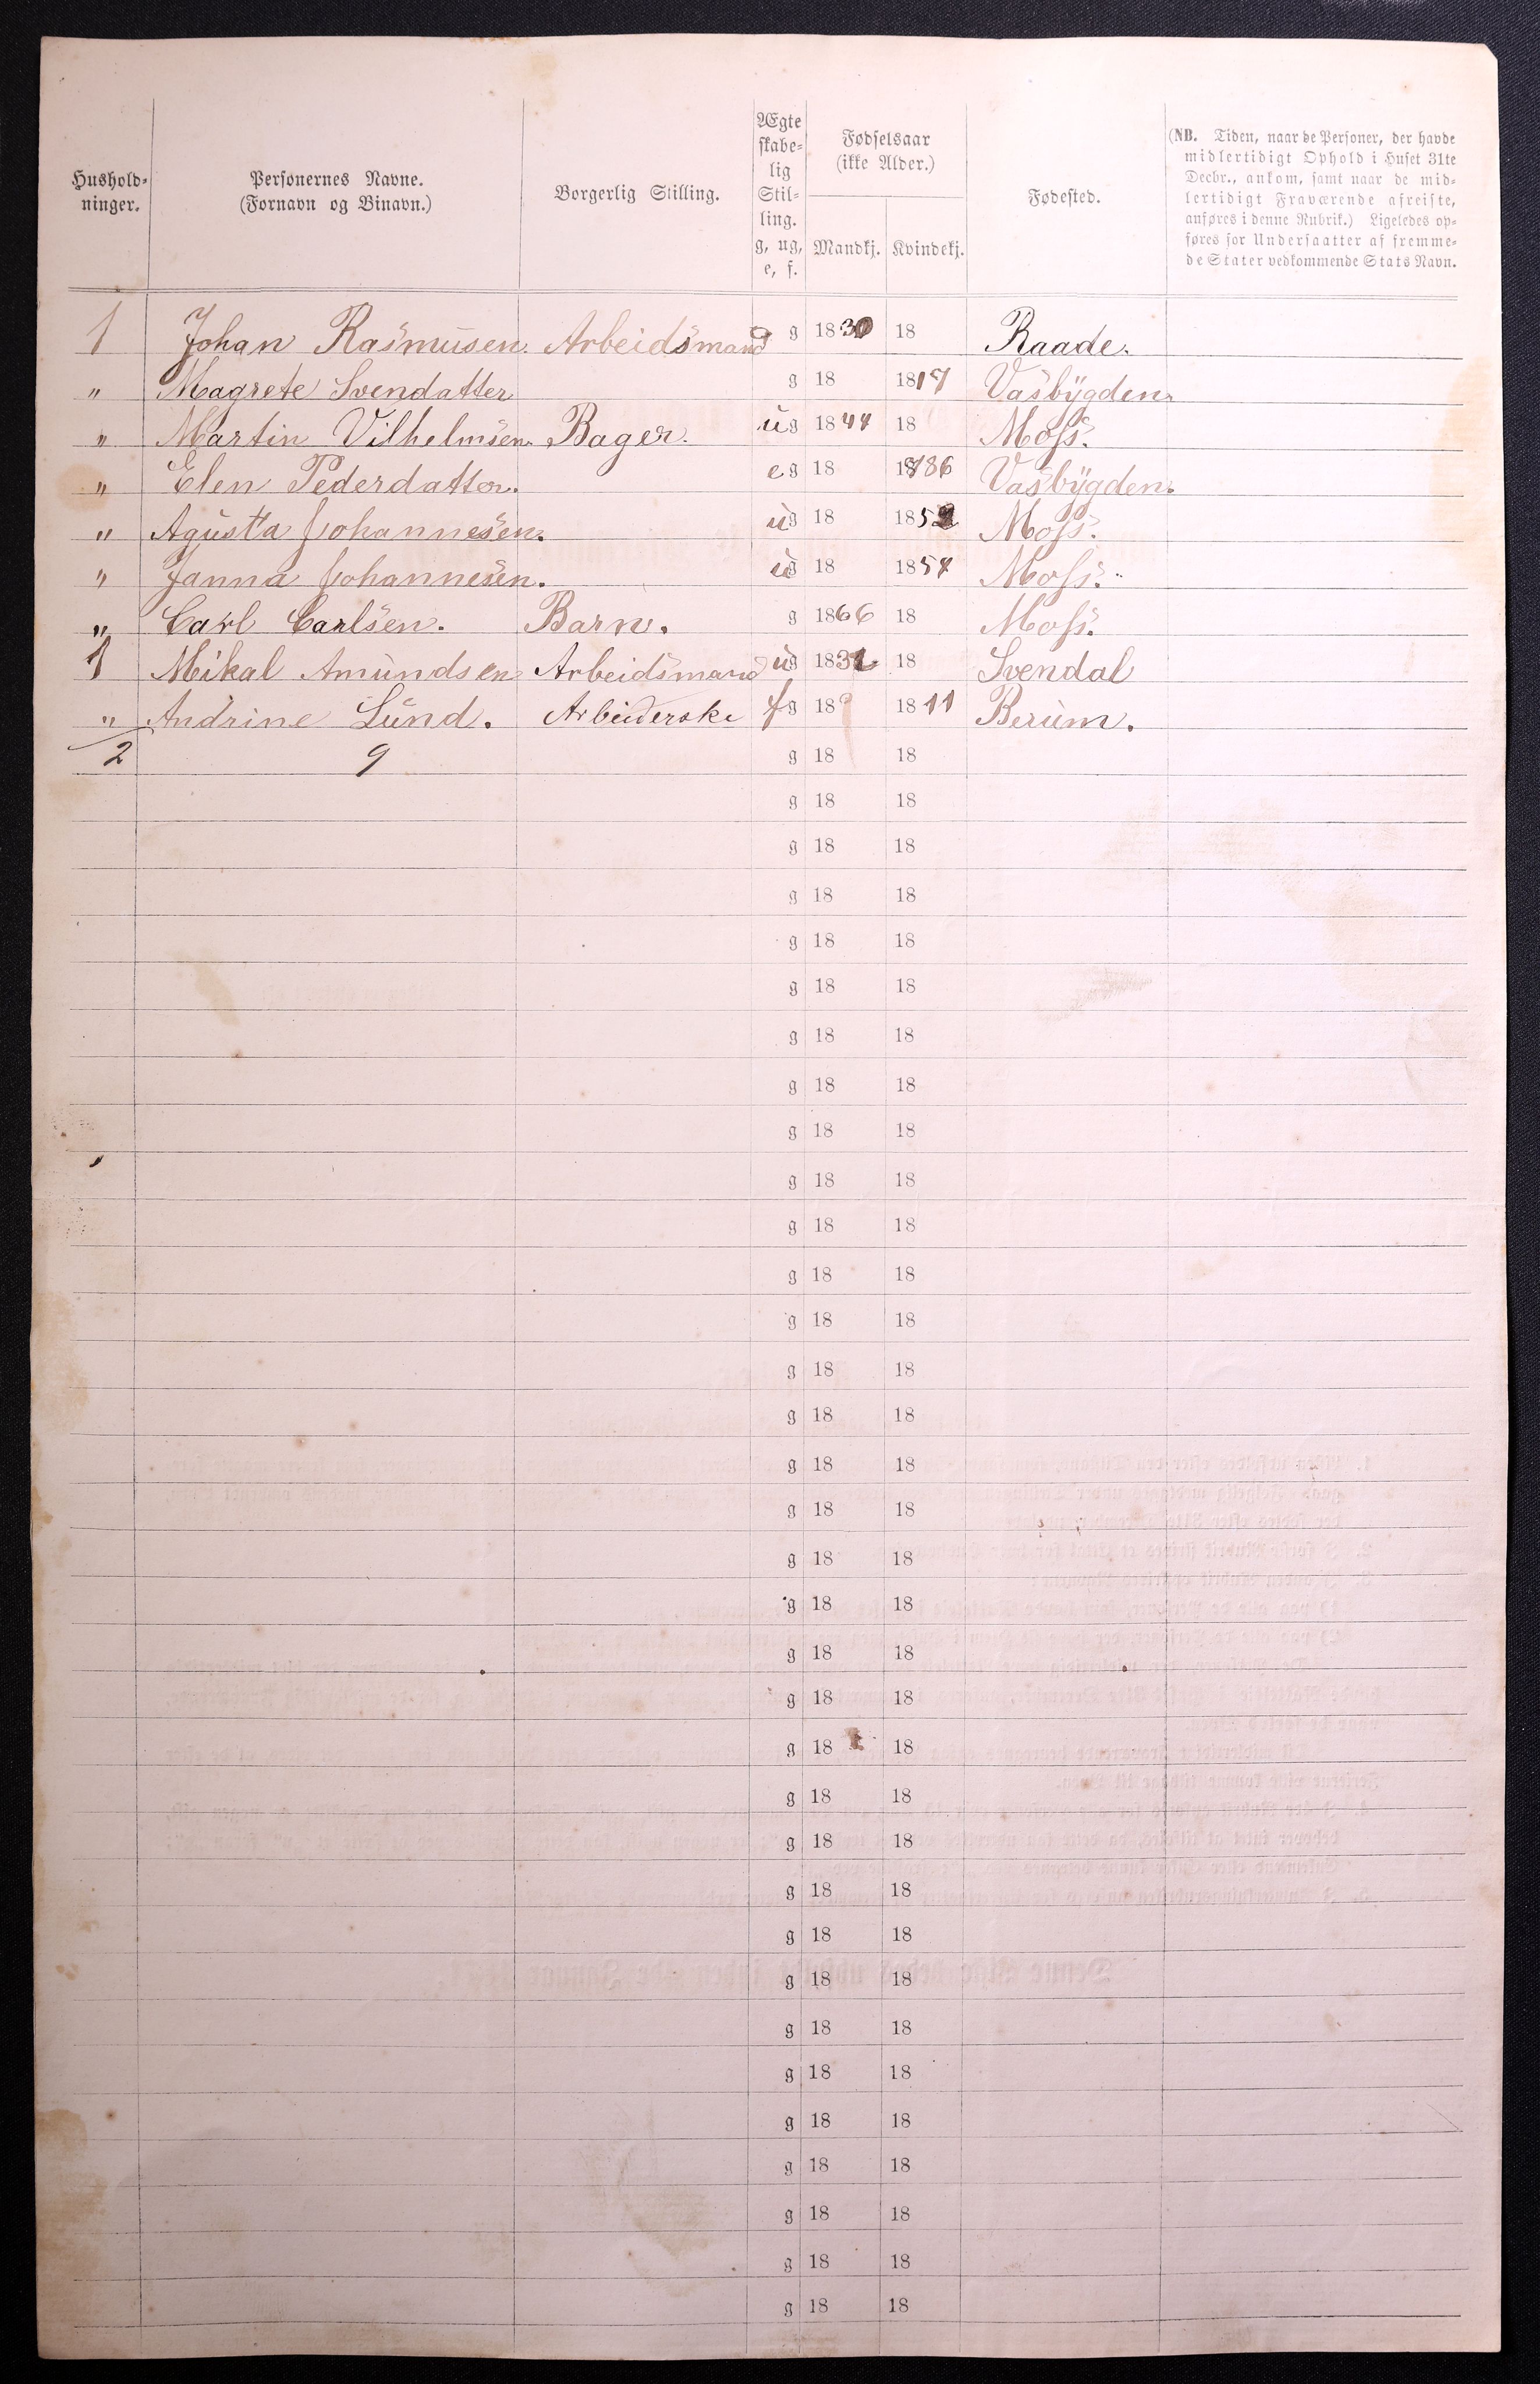 Hushold-
ninger.
Personernes Navne.
(Fornavn og Binavn.)
Borgerlig Stilling.
Ægte
skabe-
lig
Stil-
ling.
g, ug,
e, f.
Fødselsaar
(ikke Alder.)
Mandkj.
Kvindekj.
Fødested.
(NB. Tiden, naar de Personer, der havde
midlertidigt Ophold i Huset 31te
Decbr., ankom, samt naar de mid-
lertidigt Fraværende afreiste,
anføres i denne Rubrik.) Ligeledes op-
føres for Undersaatter af fremme-
de Stater vedkommende Stats Navn.
1 Johan Rasmusen. Arbeidsmand g 1830 18 Raade.
" Magrete Svendatter g 18 1817 Vasbygden.
" Martin Vilhelmsen. Bager. ug 1844 18 Moss.
" Elen Pederdatter. eg 18 1786 Vasbygden.
" Agusta Johannesen. ug 18 185 Moss.
" Janna Johannesen. ug 18 1854 Moss.
" Carl Carlsen. Barn. g 1866 18 Moss.
1 Mikal Amundsen Arbeidsmand ug 183 18 Svendal
" Andrine Lund. Arbeiderske fg 18 1811 Berum.
2 9 g 18 18
g 18 18
g 18 18
g 18 18
g 18 18
g 18 18
g 18 18
g 18 18
g 18 18
g 18 18
g 18 18
g 18 18
g 18 18
g 18 18
g 18 18
g 18 18
g 18 18
g 18 18
g 18 18
g 18 18
g 18 18
g 18 18
g 18 18
g 18 18
g 18 18
g 18 18
g 18 18
g 18 18
g 18 18
g 18 18
g 18 18
g 18 18
g 18 18
g 18 18